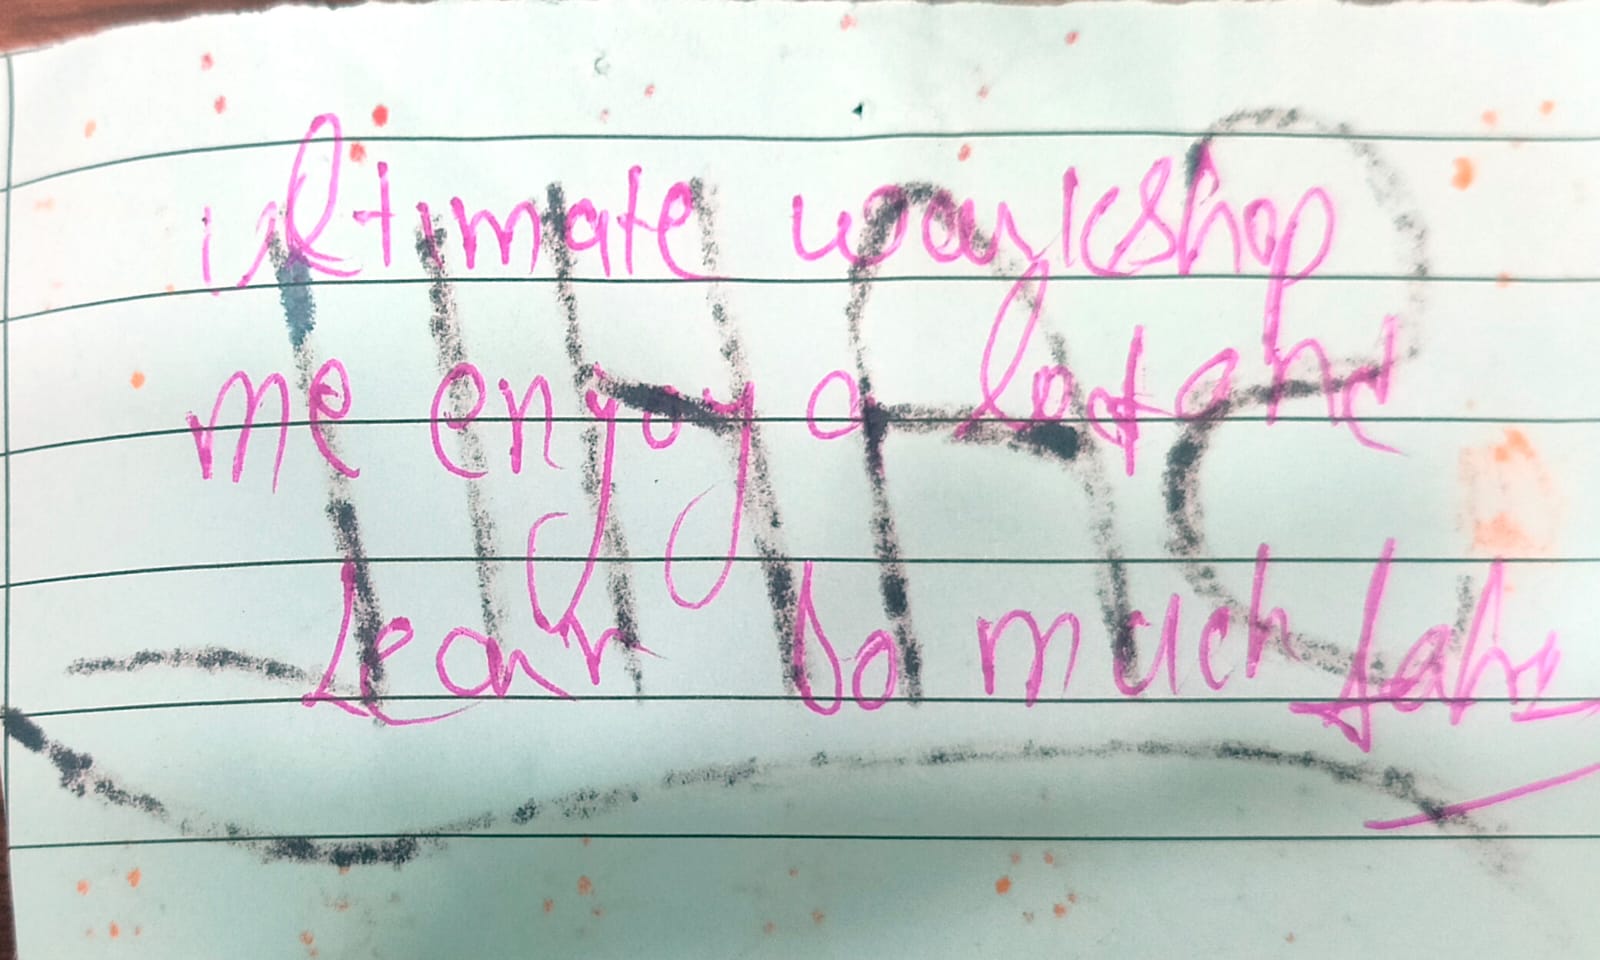 ultimate workshop
me enjoy a lot and
Learn so much